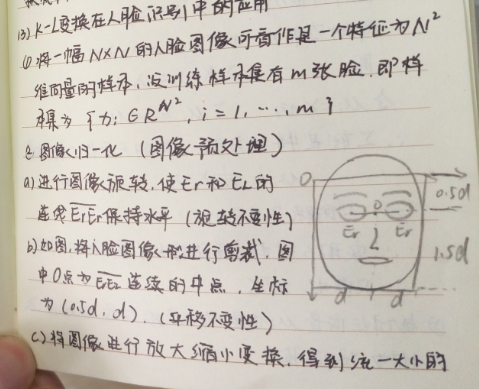 (3) K-L变换在人脸识别中的应用
①将一幅N×N的人脸图像可看作是一个特征为N²
维向量的样本,设训练样本集有m张脸,即样
本集为{f_i∈R^{N²}, i=1,…,m}
②图像归一化(图像预处理)
a)进行图像旋转,使Er和EL的
连线ErEr保持水平(旋转不变性)
b)如图,将人脸图像进行剪裁,图
中O点为ErEL连线的中点,坐标
为(0.5d, d).(平移不变性)
c)将图像进行放大缩小变换,得到统一大小的
O
0.5d
O
Er
Er
1.5d
d
d